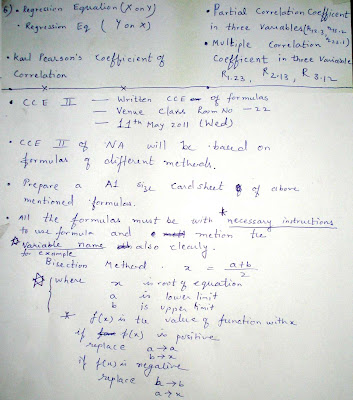 5) • Regression Equation (X on Y)
• Regression Eq ( Y on X)
• Karl Pearson's Coefficient of
Correlation
• Partial Correlation Coefficient
in three variables
• Multiple Correlation
Coefficent in three Variable
R1.23, R2.13, R3.12
• CCE II — Written CCE of formulas
— Venue Class Room No – 22
— 11th May 2011 (Wed)
• CCE II of NA will be based on
formulas of different methods.
• Prepare a A1 size Card sheet of above
mentioned formulas.
• All the formulas must be with * necessary instructions
to use formula and metion the
Variable name also clearly.
for example
Bisection Method. x = a+b/2
where x is root of equation
a is lower limit
b is upper limit
* f(x) is the value of function with x
if f(x) is positive
replace a → a
b → x
if f(x) is negative
replace b → b
a → x